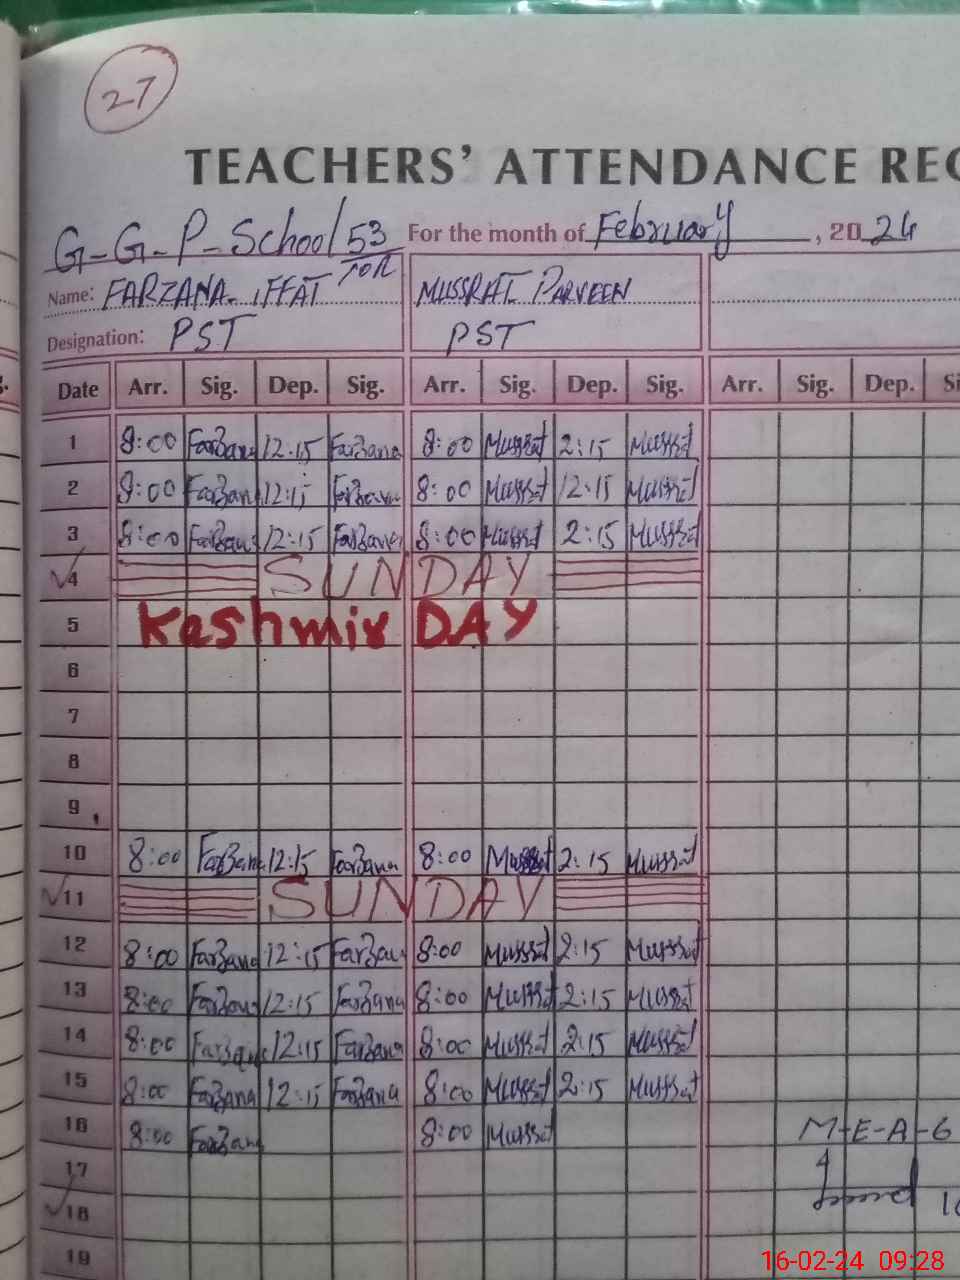 27
TEACHERS' ATTENDANCE REC
G-G-P-School/53 For the month of February, 2024
TOR
Name: FARZANA IFFAT MUSSRAT PARVEEN
Designation: PST PST
Date Arr. Sig. Dep. Sig. Arr. Sig. Dep. Sig. Arr. Sig. Dep. Si
1 8:00 Farzana 12:15 Farzana 8:00 Mussrat 2:15 Mussrat
2 8:00 Farzana 12:15 Farzana 8:00 Mussrat 12:15 Mussrat
3 8:00 Farzana 12:15 Farzana 8:00 Mussrat 2:15 Mussrat
4 SUNDAY
5 Kashmir DAY
6
7
8
9
10 8:00 Farzana 12:15 Farzana 8:00 Mussrat 2:15 Mussrat
11 SUNDAY
12 8:00 Farzana 12:15 Farzana 8:00 Mussrat 2:15 Mussrat
13 8:00 Farzana 12:15 Farzana 8:00 Mussrat 2:15 Mussrat
14 8:00 Farzana 12:15 Farzana 8:00 Mussrat 2:15 Mussrat
15 8:00 Farzana 12:15 Farzana 8:00 Mussrat 2:15 Mussrat
16 8:00 Farzana 8:00 Mussrat M-E-A-G
17
18
19
16-02-24 09:28